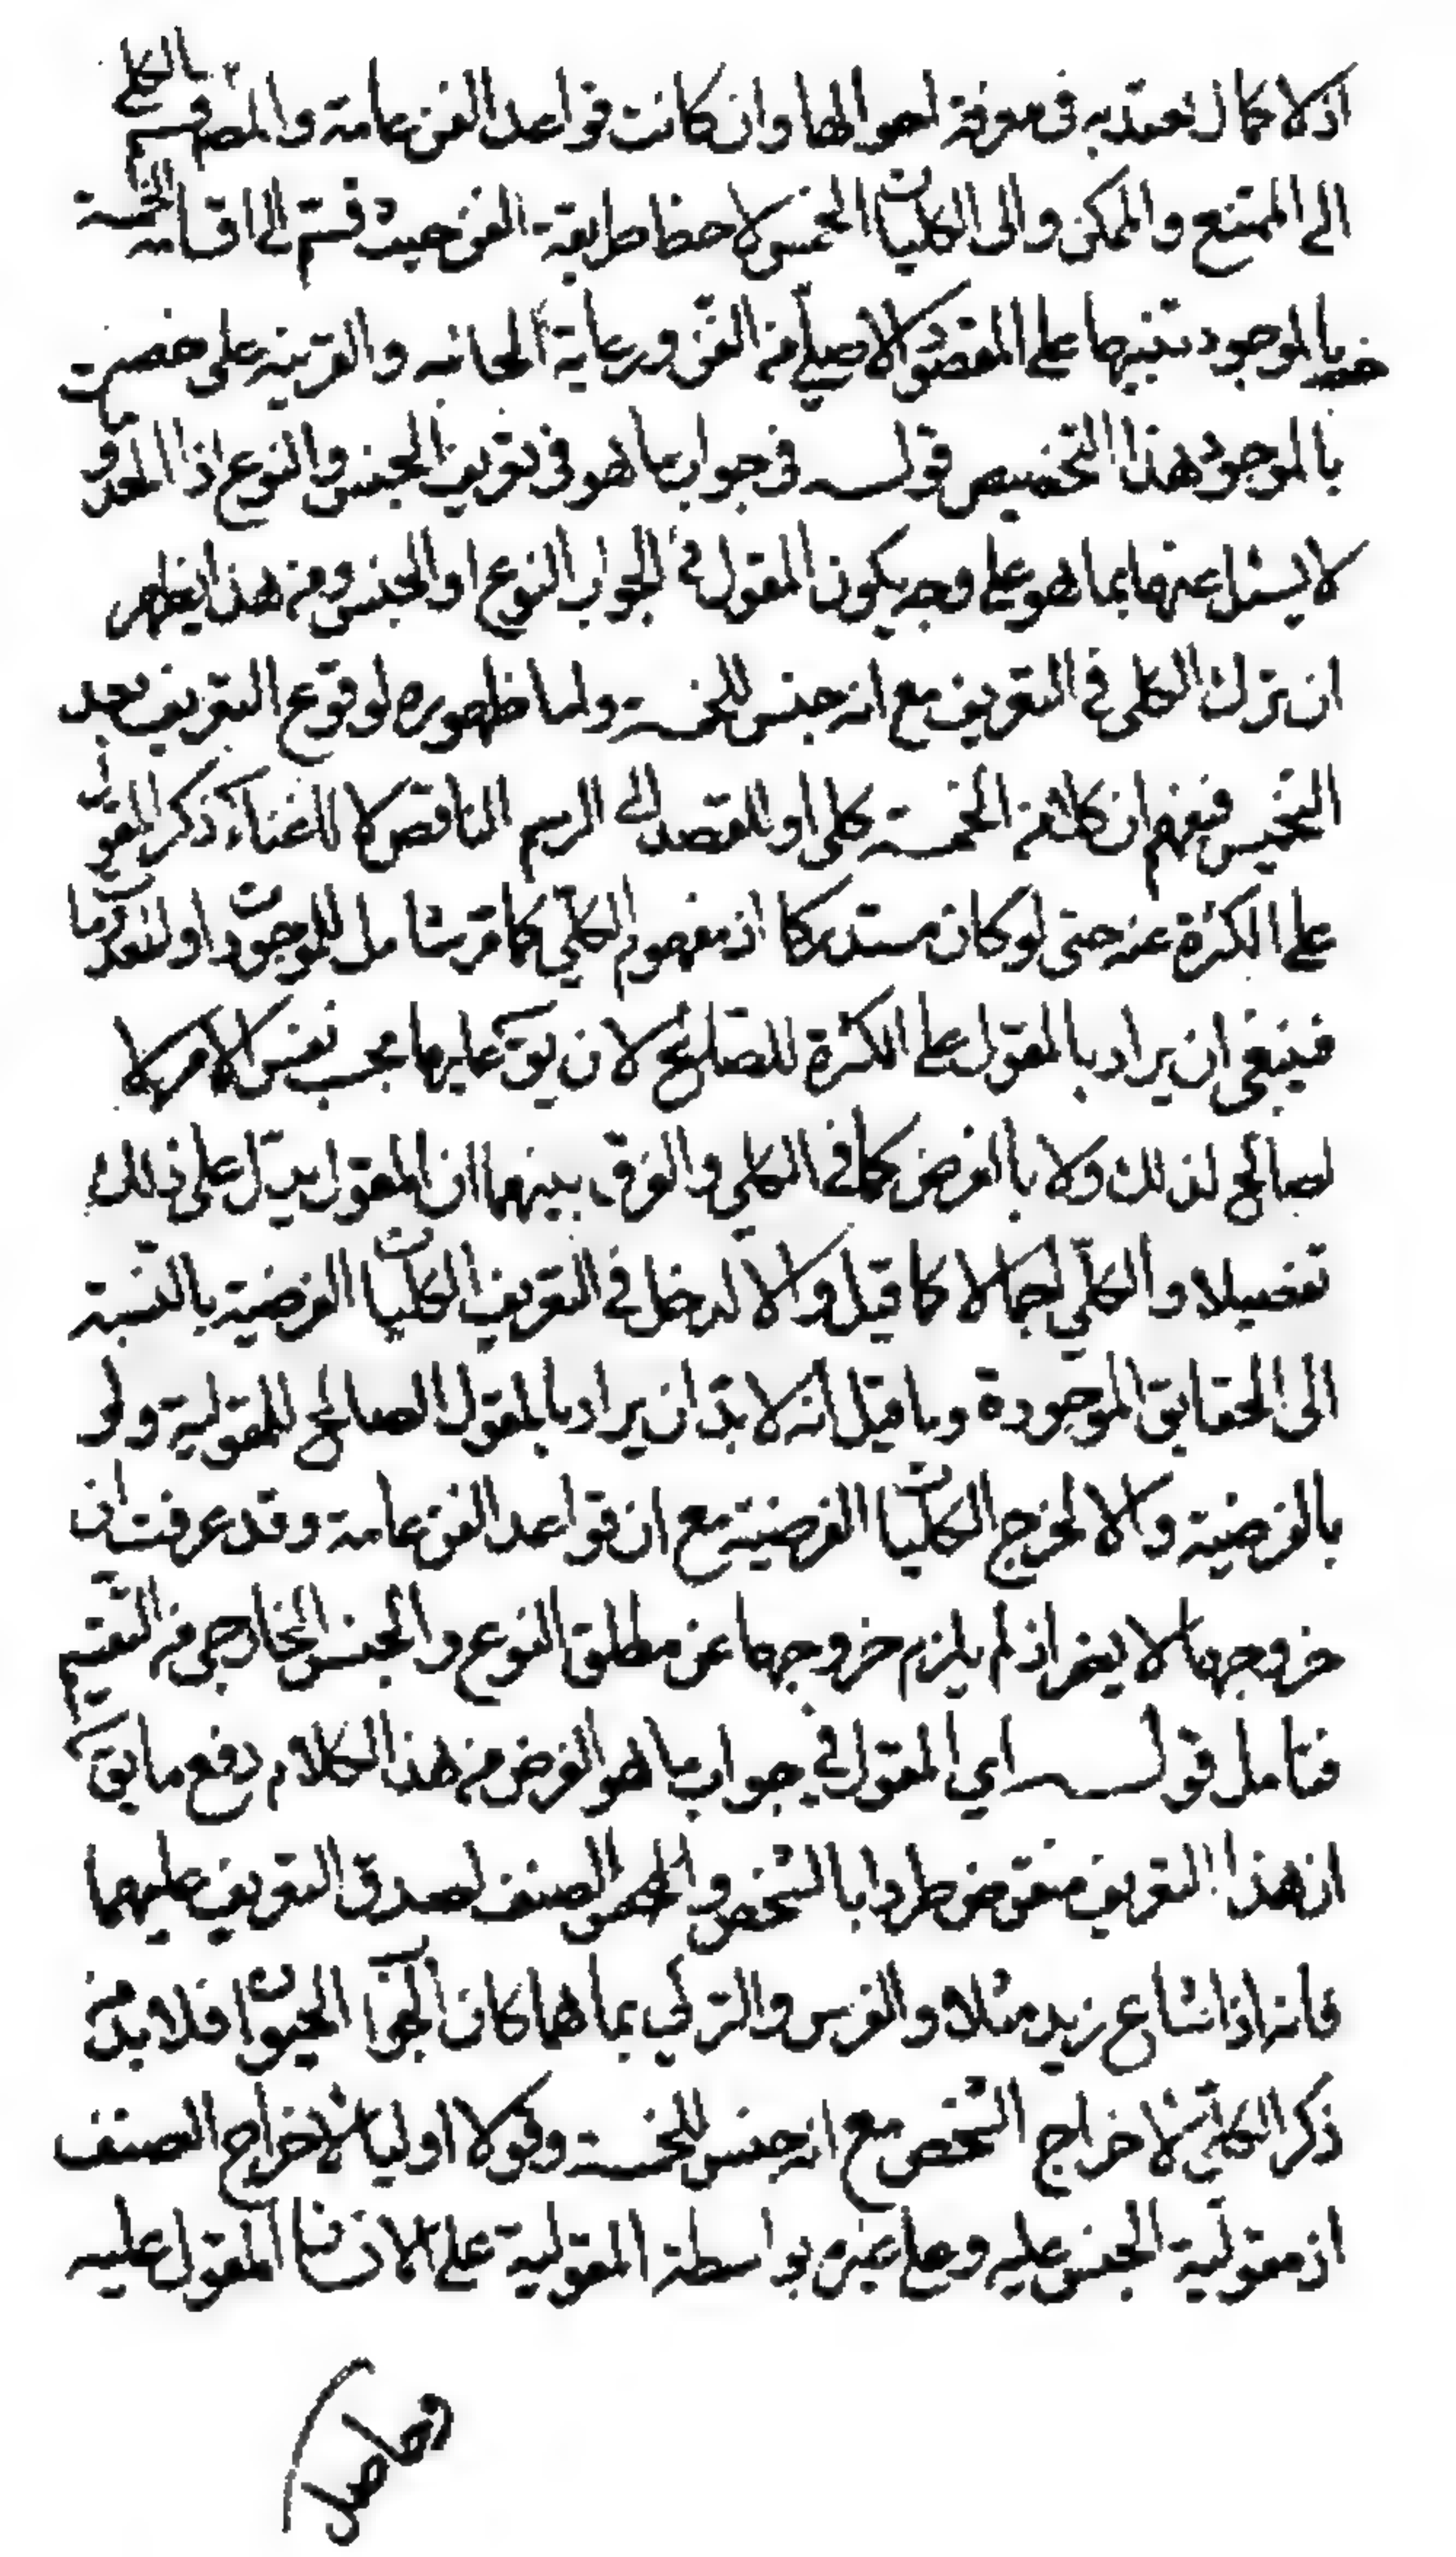 اذ لا كمال نعتد به فى معرفة احوالها وان كانت قواعد الفن عامة والمصـ قسم الكلى
الى الممتنع والممكن والى الكليات الخمس لاحظا طريقة الفن حيث قسم الى اقسامه الخمسة
بالموجود تنبيها على المقصود الاصلى من الفن ورعاية لجانبه والقرينة على
بالموجود هذا التخصيص قوله فى جواب ما هو فى تعريف الجنس والنوع اذ المعدوم
لا يسئل عنها بما هو على وجه يكون المقول فى الجواب النوع او الجنس ومن هذا يظهر
ان ترك الكلى فى التعريف مع انه جنس للخمسة ولما ظهوره لوقوع التعريف بعد
التخميس فيفهم ان كلا من الخمسة كلى او للقصد الى الرسم الناقص لا لاغناء ذكر المقول
على الكثرة عنه حتى لو كان مستدركا اذ مفهوم الكلى كما مر شامل للموجودات او المعدومات
فينبغى ان يراد بالمقول على الكثرة للصالح لان يق عليها بحسب نفس الامر لا
لصالح لذلك ولا بالفرض كما فى الكلى والفرق بينهما ان المقول يدل على ذلك
تفصيلا والكلى اجمالا كما قيل والا لدخل فى التعريف الكليات الفرضية بالنسبة
الى الحقايق الموجودة وما قيل انه لا بد ان يراد بالمقول الصالح للمقولية ولو
بالفرضية والا لخرج الكليات الفرضية مع ان قواعد الفن عامة وقد عرفت ان
خروجها لا يضر اذ لم يلزم خروجها عن مطلق النوع والجنس الخارجى من التقسيم
فتامل قوله اي المقول فى جواب ما هو الغرض من هذا الكلام دفع ما يق
ان هذا التعريف منقوض طردا بالشخص والصنف لصدق التعريف عليهما
فانه اذا شاع زيد مثلا والفرس والتركى بما هما كان الجواب الحيوان فلا بد من
ذكر الكلى لاخراج الشخص مع انه جنس للخمسة وقولا اوليا لاخراج الصنف
اذ مقولية الجنس عليه وعلى غيره بواسطة المقولية على الانسان المقول عليه